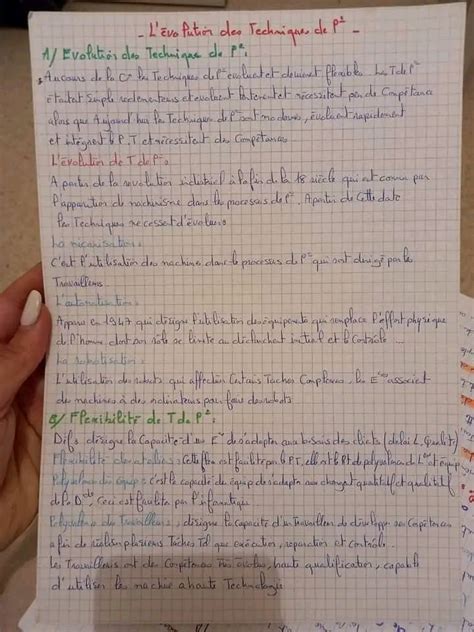 - L'évolution des Techniques de P² -
A/ Evolution des Technique de P² :
Au cours de la C les Techniques de P² évoluent et devient flexibles. Les T de P²
étaient simple et évoluent lentement et nécessitent pas de Compétence
alors que Aujourd'hui les Techniques de P² sont moderne, évoluent rapidement
et intègrent le P.T et nécessitent des Compétences
L'évolution de T de P² :
A partir de la revolution industriel à la fin de la 18 siècle qui est connu par
l'apparition de machinisme dans le processus de P². A partir de cette date
les Techniques ne cessent d'évoluer
La mécanisation :
C'est l'utilisation des machines dans le processus de P² qui sont dirigé par les
Travailleurs
L'automatisation :
Apparu en 1947 qui désigne l'utilisation des équipements qui remplace l'effort physique
de l'homme dont son rôle se limite au déclenchement initial et le Contrôle ...
La robotisation :
L'utilisation des robots qui affectent Certains Taches Complexes, les E associent
des machines à des ordinateurs pour faire des robots
B/ Flexibilité de T de P² :
Déf : désigne la Capacité d'une E de s'adapter aux besoins des clients (délai L, Qualité)
Flexibilité des ateliers : Cette est facilité par le PT, elle et le de polyvalence de et équip
Polyvalence des équip : c'est la capacité de équip de s'adapter aux changements quantitatif et qualitatif
de la D, Ceci est facilité par l'informatique
Polyvalence des Travailleurs : désigne la Capacité d'un Travailleur de développer ses Compétences
afin de réaliser plusieurs Taches Tel que exécution, réparation et contrôle.
Les Travailleurs ont des Compétences Très évolués, haute qualification, capable
d'utiliser les machine à haute Technologie